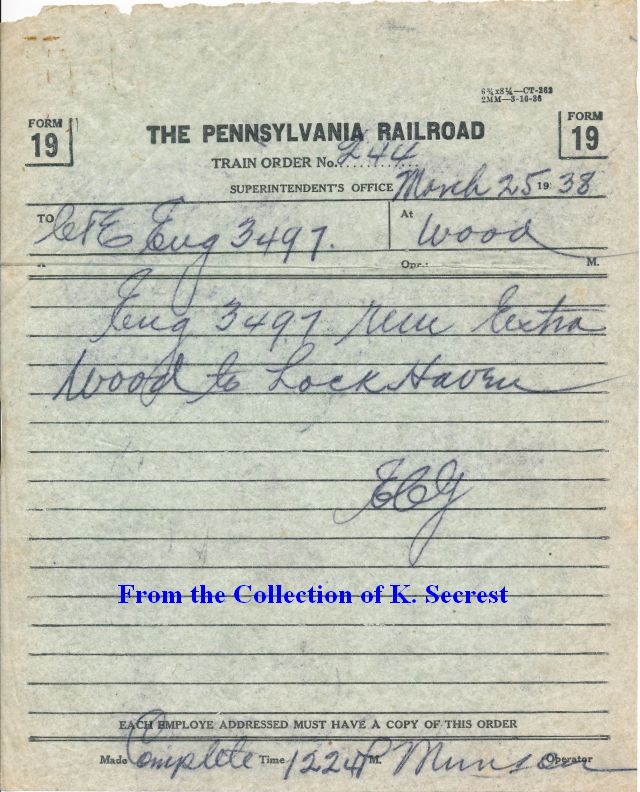 6¾x8¼—CT-262
2MM—3-16-36
FORM 19
FORM 19
THE PENNSYLVANIA RAILROAD
TRAIN ORDER No. 244
SUPERINTENDENT'S OFFICE March 25 19 38
TO C&E Eng 3497. At Wood
Opr.: M.
Eng 3497 run Extra
Wood to Lock Haven
From the Collection of K. Secrest
EACH EMPLOYE ADDRESSED MUST HAVE A COPY OF THIS ORDER
Made Complete Time 1224 P M. Munson Operator